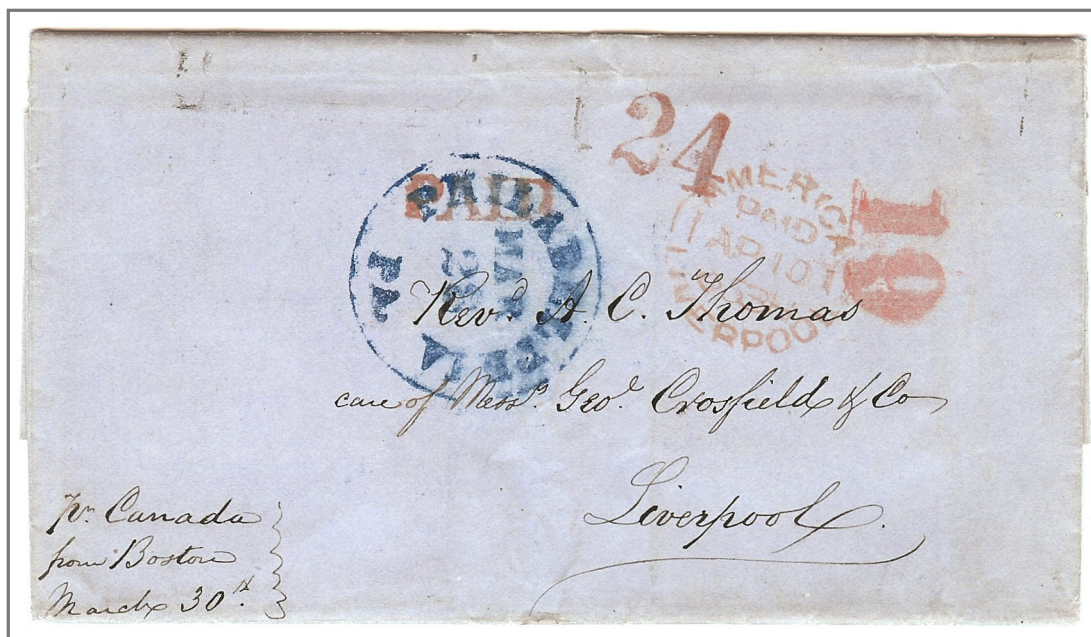 24
PAID
PHILADELPHIA PA.
MAR
AMERICA
PAID
AP 10
LIVERPOOL
19
Revd. A. C. Thomas
care of Messrs. Geo. Crosfield & Co
Liverpool.
pr. Canada
from Boston
March 30th.